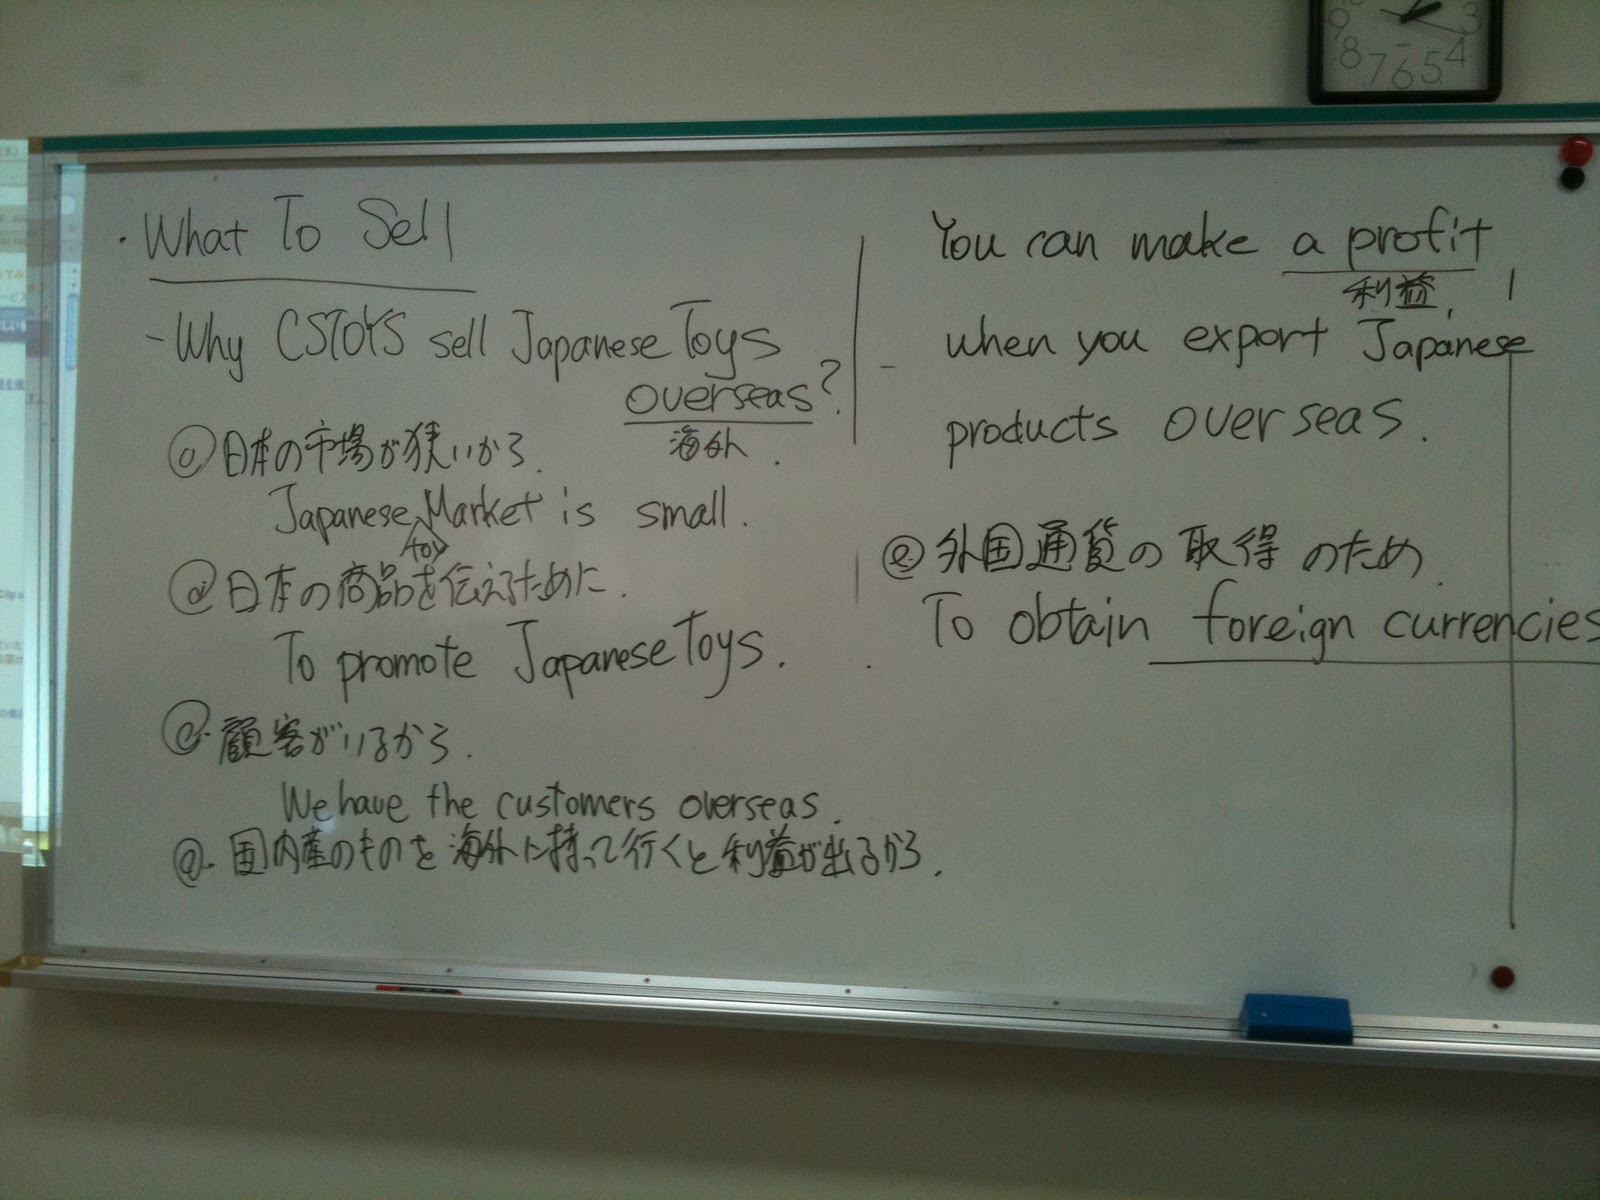 · What To Sell
- Why CSTOYS sell Japanese Toys
overseas?
海外.
日本の市場が狭いから.
Japanese Market is small.
toy
日本の商品を伝えるために.
To promote Japanese Toys.
顧客がいるから.
We have the customers overseas.
@. 国内産のものを海外に持って行くと利益が出るから.
You can make a profit
利益
when you export Japanese
products overseas.
外国通貨の取得のため.
To obtain foreign currencies
9 3
8 7 6 5 4